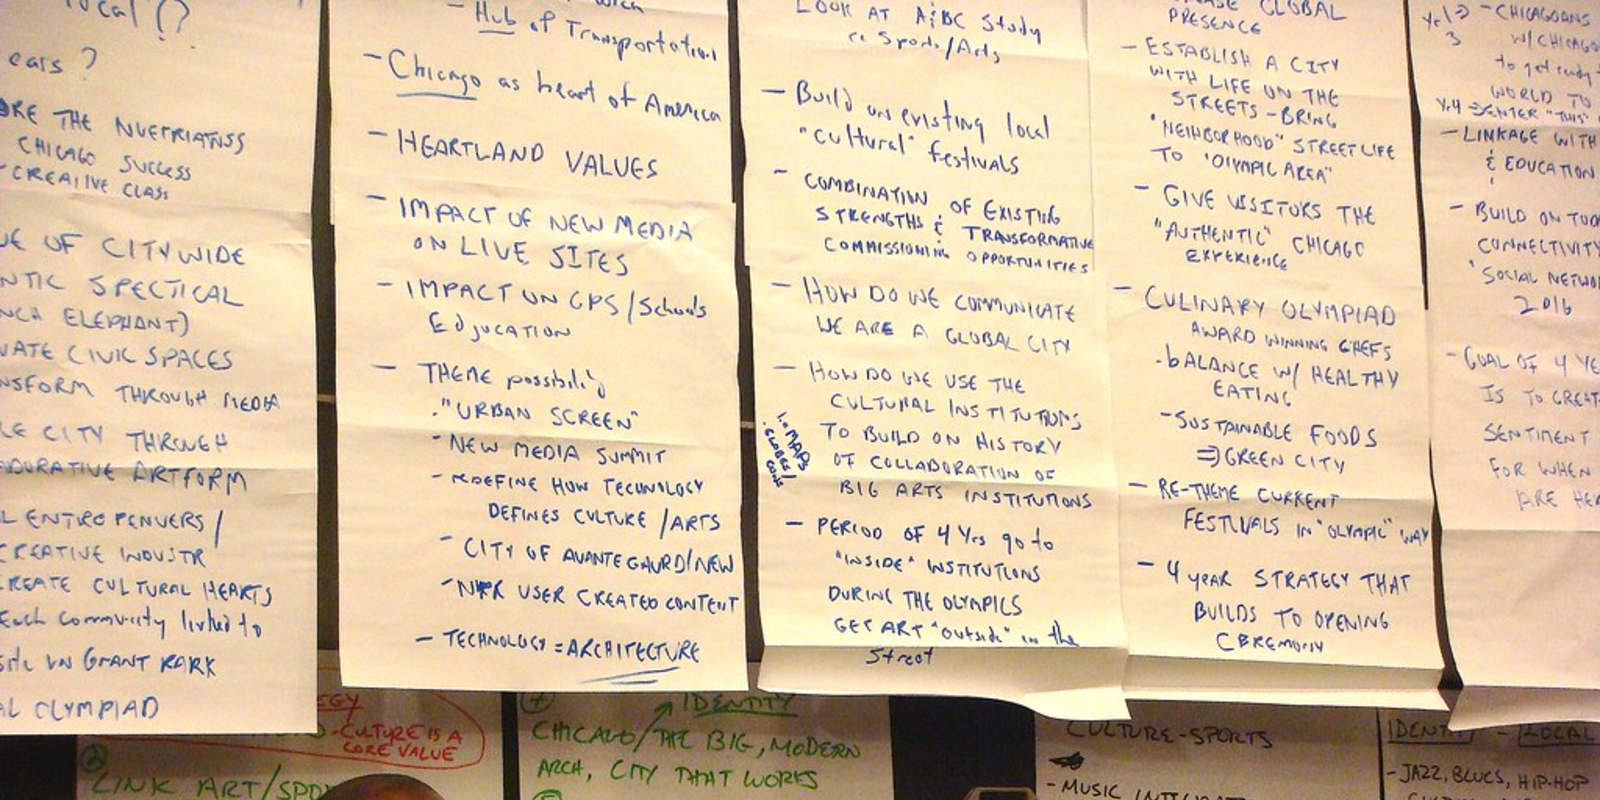 local (?
ears?
THE
CHICAGO SUCCESS
- CREATIVE CLASS
OF CITYWIDE
SPECTICAL
ELEPHANT)
CIVIC SPACES
THROUGH MEDIA
CITY THROUGH
ARTFORM
ENTROPENUERS /
CREATIVE INDUSTR
CREATE CULTURAL HEARTS
Each community linked to
Site in GRANT PARK
OLYMPIAD
- Hub of Transportation
- Chicago as heart of America
- HEARTLAND VALUES
- IMPACT OF NEW MEDIA
ON LIVE SITES
- IMPACT ON CPS / Schools
EDJUCATION
- THEME possibility
. "URBAN SCREEN"
- NEW MEDIA SUMMIT
- REDEFINE HOW TECHNOLOGY
DEFINES CULTURE / ARTS
- CITY OF AVANTE GAURD / NEW
- USER CREATED CONTENT
- TECHNOLOGY = ARCHITECTURE
LOOK AT A&BC Study
re Sports/Arts
- Build on existing local
"cultural" festivals
- COMBINATION OF EXISTING
STRENGTHS & TRANSFORMATIVE
COMMISSIONING OPPORTUNITIES
- HOW DO WE COMMUNICATE
WE ARE A GLOBAL CITY
- HOW DO WE USE THE
CULTURAL INSTITUTIONS
TO BUILD ON HISTORY
OF COLLABORATION OF
BIG ARTS INSTITUTIONS
MAPS
GLOBES/
- PERIOD OF 4 Yrs go to
"INSIDE" INSTITUTIONS
DURING THE OLYMPICS
GET ART "outside" in the
Street
GLOBAL
PRESENCE
- ESTABLISH A CITY
WITH LIFE ON THE
STREETS - BRING
"NEIHBORHOOD" STREET LIFE
TO "OLYMPIC AREA"
- GIVE VISITORS THE
"AUTHENTIC" CHICAGO
EXPERIENCE
- CULINARY OLYMPIAD
AWARD WINNING CHEFS
- BALANCE W/ HEALTHY
EATING
- SUSTAINABLE FOODS
⇒ GREEN CITY
- RE-THEME CURRENT
FESTIVALS IN "OLYMPIC" WAY
- 4 year STRATEGY THAT
BUILDS TO OPENING
CEREMONY
- CHICAGOANS
W/ CHICAGO
to get ready
WORLD TO
Yr 4 ⇒ ENTER "THIS"
- LINKAGE WITH
& EDUCATION
- BUILD ON
CONNECTIVITY
"SOCIAL
2016
- GOAL OF 4
IS TO
SENTIMENT
FOR WHEN
ARE
- CULTURE IS A
CORE VALUE
LINK ART/
IDENTITY
CHICAGO / THE BIG, MODERN
ARCH, CITY THAT WORKS
CULTURE - SPORTS
- MUSIC
IDENTITY - LOCAL
- JAZZ, BLUES, HIP-HOP